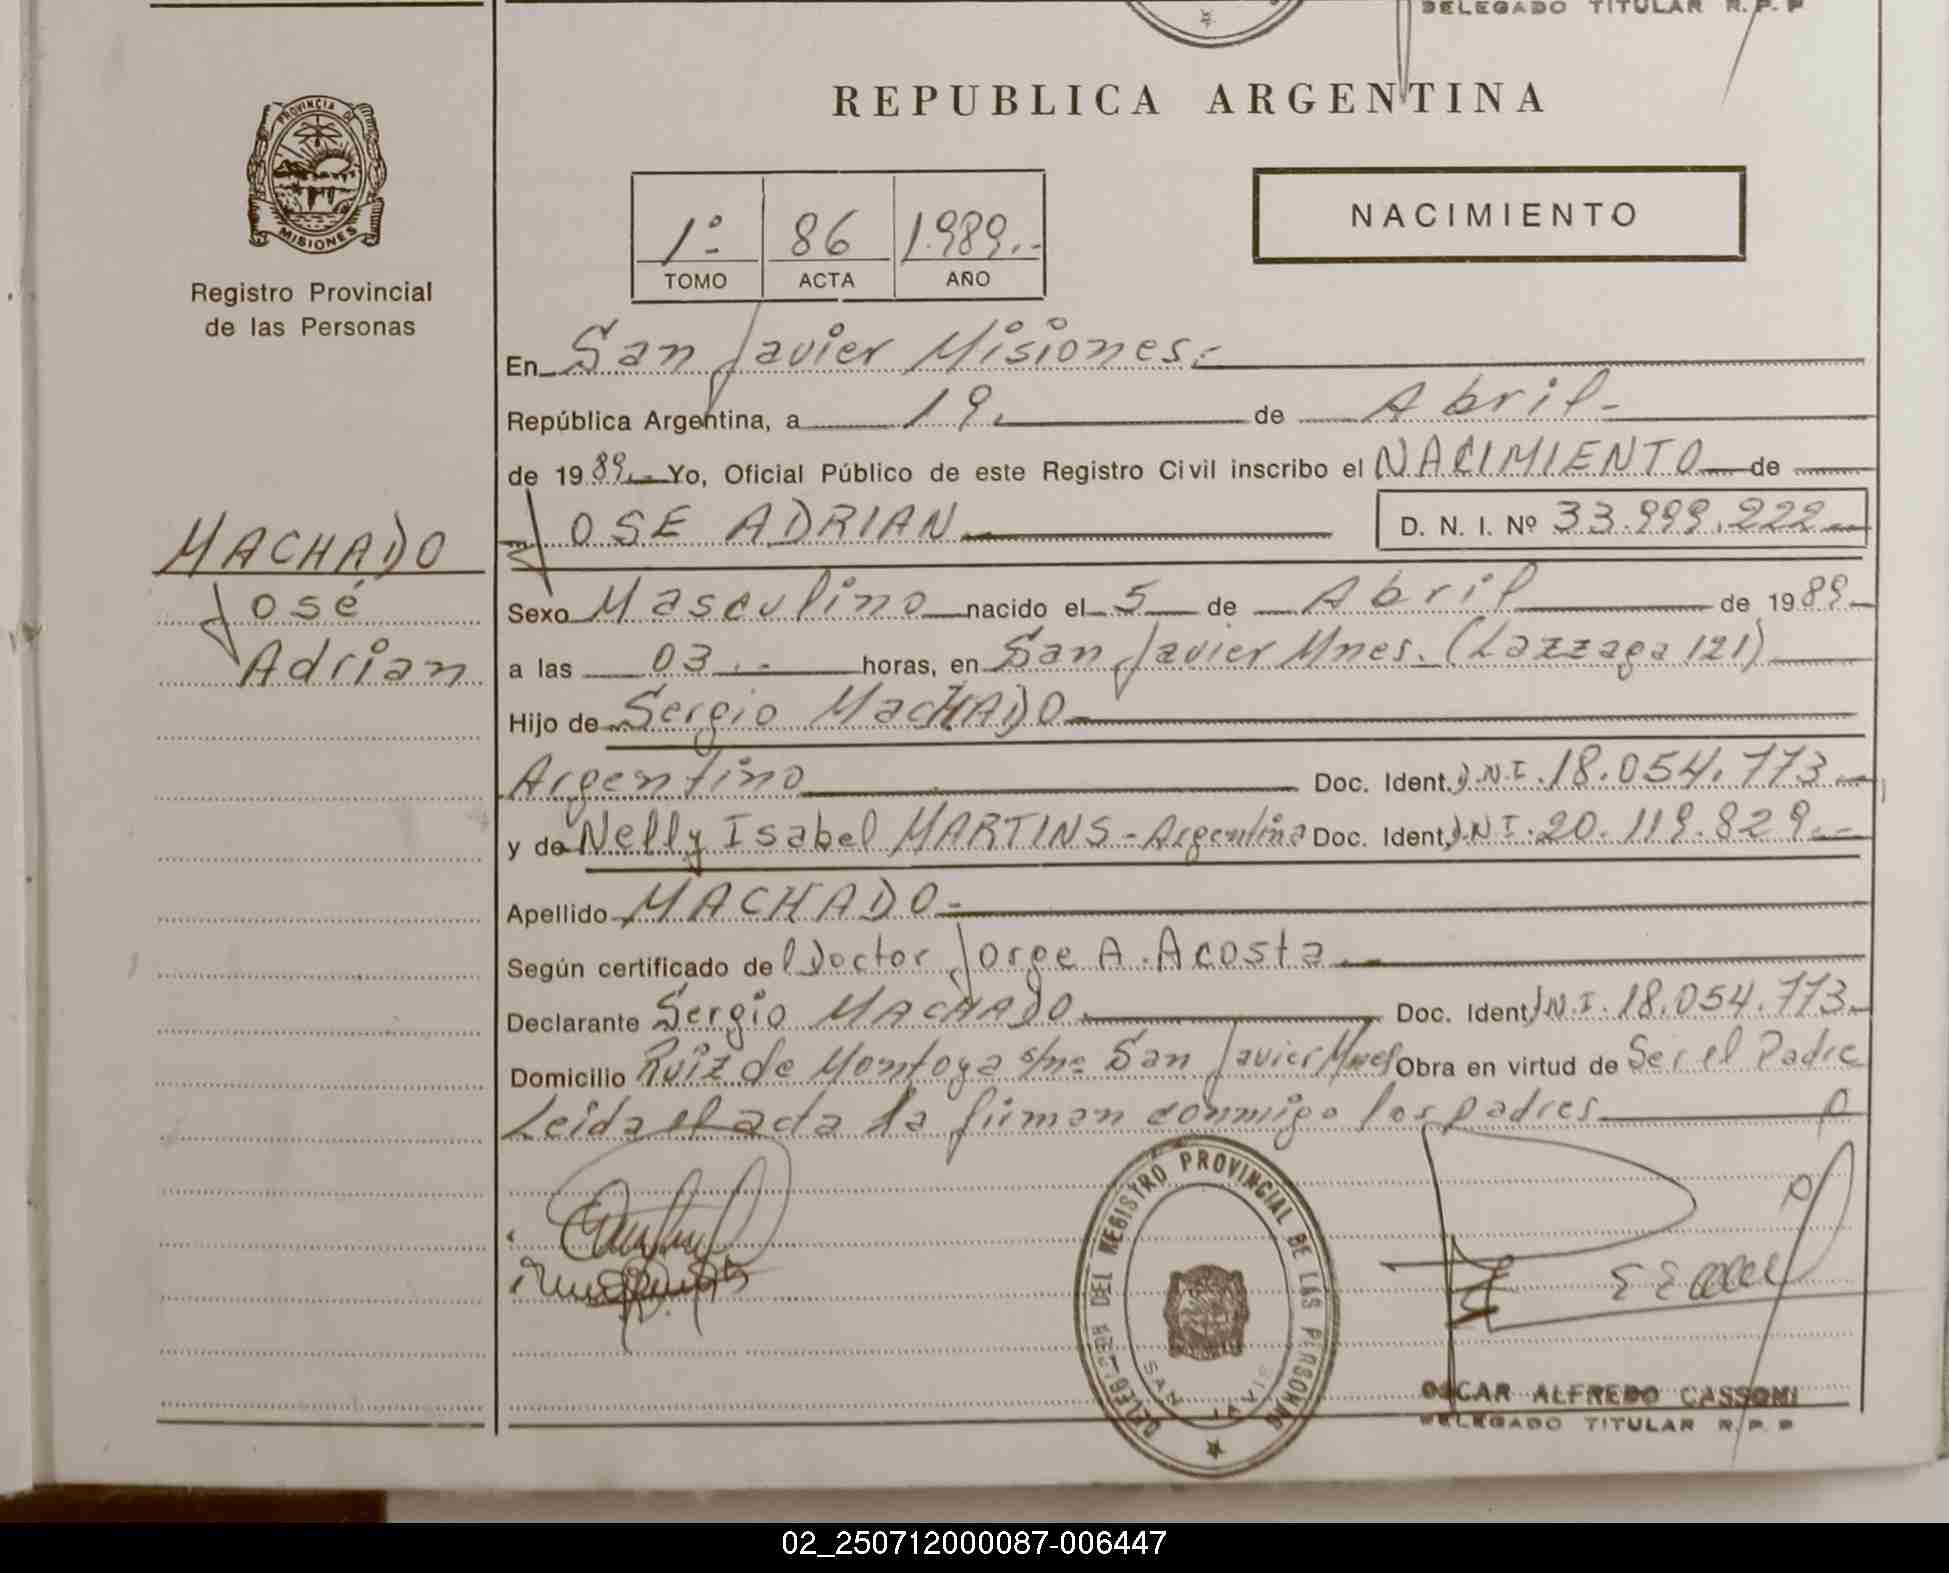 DELEGADO TITULAR R.P.P
REPUBLICA ARGENTINA
PROVINCIA DE MISIONES
Registro Provincial
de las Personas
1º 86 1.989.-
TOMO ACTA AÑO
NACIMIENTO
En San Javier Misiones.-
República Argentina, a 19. de Abril-
de 1989.- Yo, Oficial Público de este Registro Civil inscribo el NACIMIENTO de
JOSE ADRIAN D. N. I. Nº 33.999.222
MACHADO
José
Adrian
Sexo Masculino nacido el 5 de Abril de 1989.
a las 03.- horas, en San Javier Mnes. (Lazzaga 121)
Hijo de Sergio MacHADO
Argentino Doc. Ident. D.N.I. 18.054.773.-
y de Nelly Isabel MARTINS - Argentina Doc. Ident. D.N.I. 20.119.829.-
Apellido MACHADO.-
Según certificado del Doctor Jorge A. Acosta.-
Declarante Sergio MACHADO. Doc. Ident. D.N.I. 18.054.773.
Domicilio Ruiz de Montoya s/nº San Javier Mnes Obra en virtud de Ser el Padre
Leida el acta la firman conmigo los padres
DELEGACION DEL REGISTRO PROVINCIAL DE LAS PERSONAS
SAN JAVIER
OSCAR ALFREDO CASSONI
DELEGADO TITULAR R.P.P
02_250712000087-006447